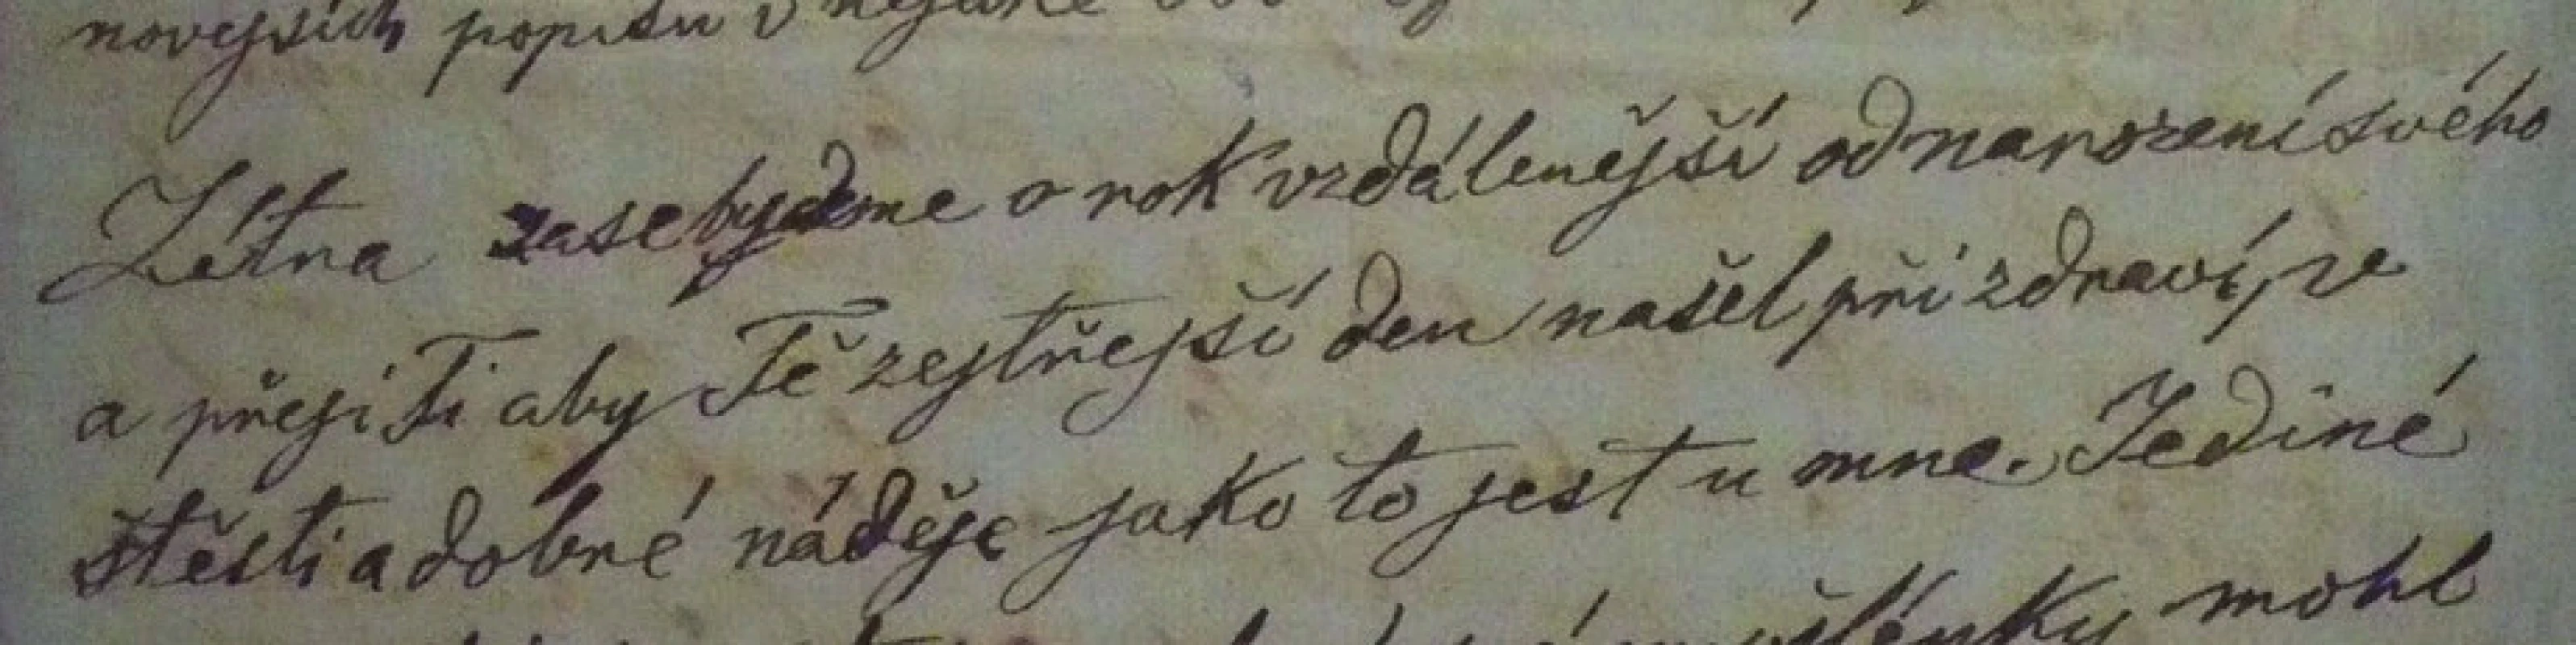 novějších popisu v nějaké
Zétra zase byjdeme o rok vzdálenější od narození svého
a přeji Ti aby Tě zejtřejší den našel při zdraví, ve
štěsti a dobré náděje jako to jest u mne. Jediné
myšlénky mohl